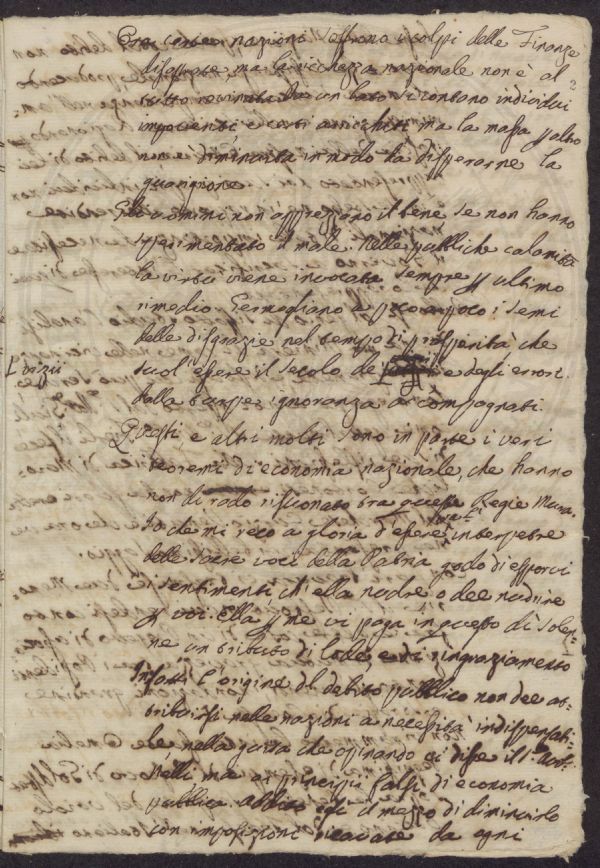 Tra certe nazioni s'offrono i colpi delle Finanze
2
disastrate, ma la ricchezza nazionale non è al
tutto rovinata. Da un lato si contano individui
impotenti, e certi arricchiti ma la massa p altro
non è diminuita in modo da disperarne la
guarigione.
Gli uomini non apprezzano il bene se non hanno
sperimentato il male. Nelle pubbliche calamità
la virtù viene invocata sempre p ultimo
rimedio. Germogliano a poco a poco i semi
delle disgrazie nel tempo di prosperità che
L'vizii
suol essere il secolo de e degli errori
dalla ignoranza accompagnati.
Questi e altri molti sono in parte i veri
teoremi di economia nazionale, che hanno
non di rado risuonato tra queste Regie Mura.
Io che mi reco a gloria d'essere interpetre
delle sacre voci della Patria godo di esporvi
i sentimenti ch'ella nudre o dee nudrire
p voi. Ella p me vi paga in questo dì solen-
ne un tributo di lode e di ringraziamento
Infatti l'origine del debito pubblico non dee at-
tribuirsi nelle nazioni a necessità indispensabi-
le nella guisa che opinando ci disse il S.
ma a principii falsi di economia
pubblica il mezzo di diminuirlo
con imposizioni ricavate da ogni